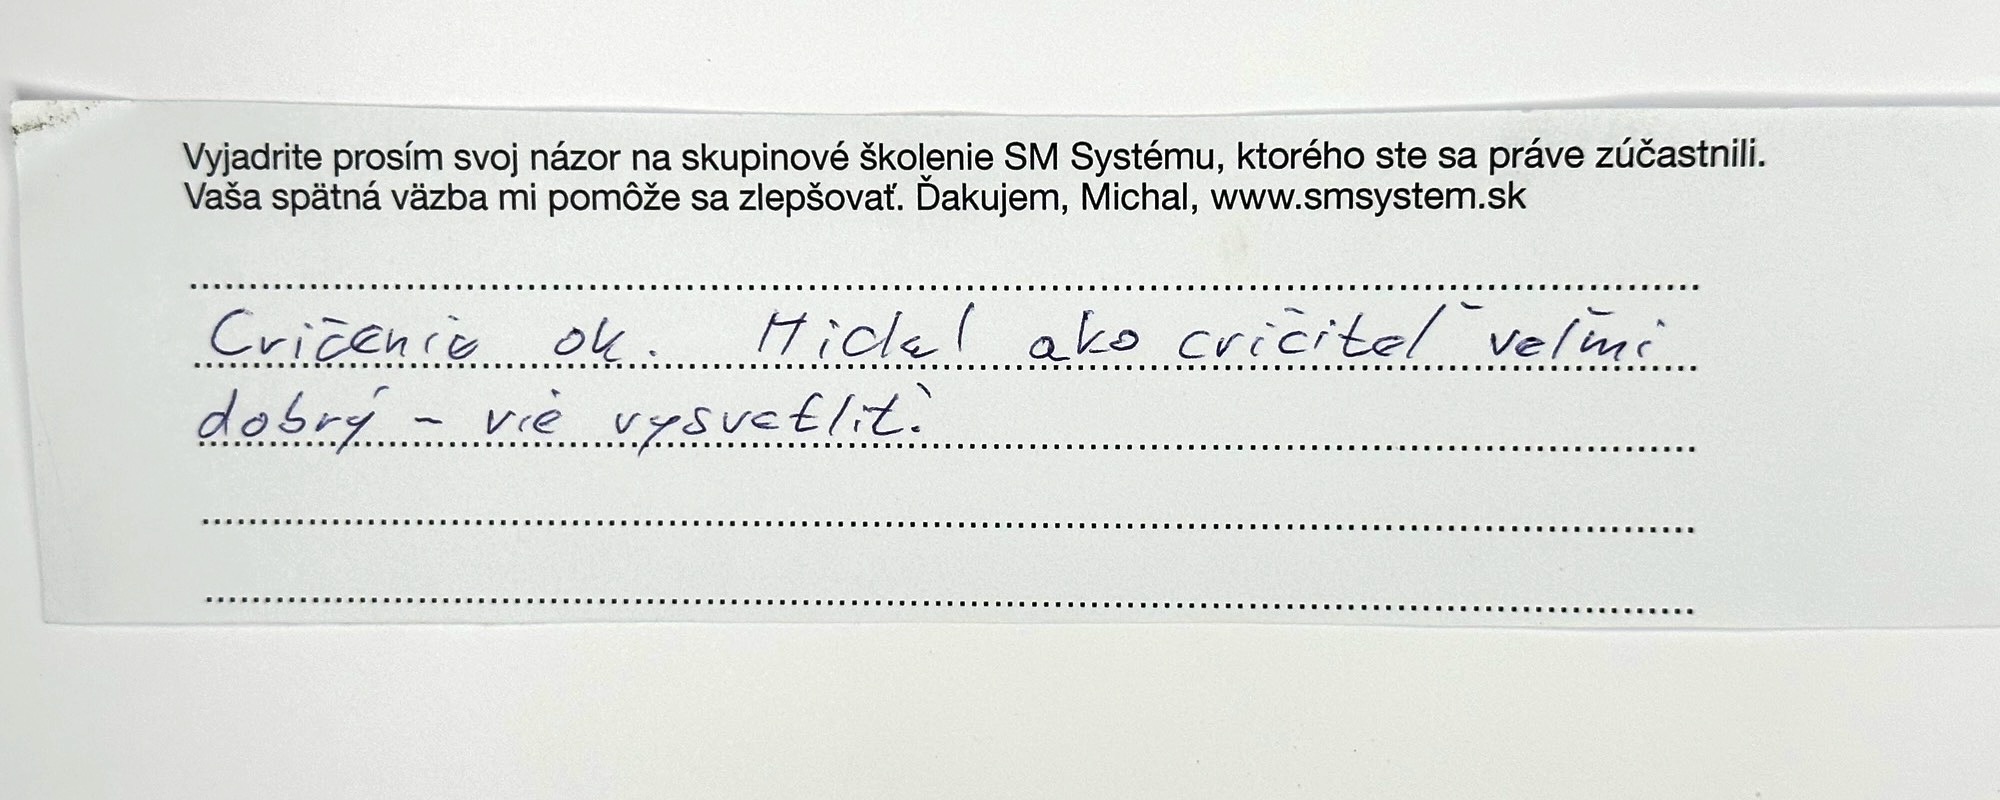 Vyjadrite prosím svoj názor na skupinové školenie SM Systému, ktorého ste sa práve zúčastnili.
Vaša spätná väzba mi pomôže sa zlepšovať. Ďakujem, Michal, www.smsystem.sk
Cvičenie ok. Michal ako cvičiteľ veľmi
dobrý - vie vysvetliť.